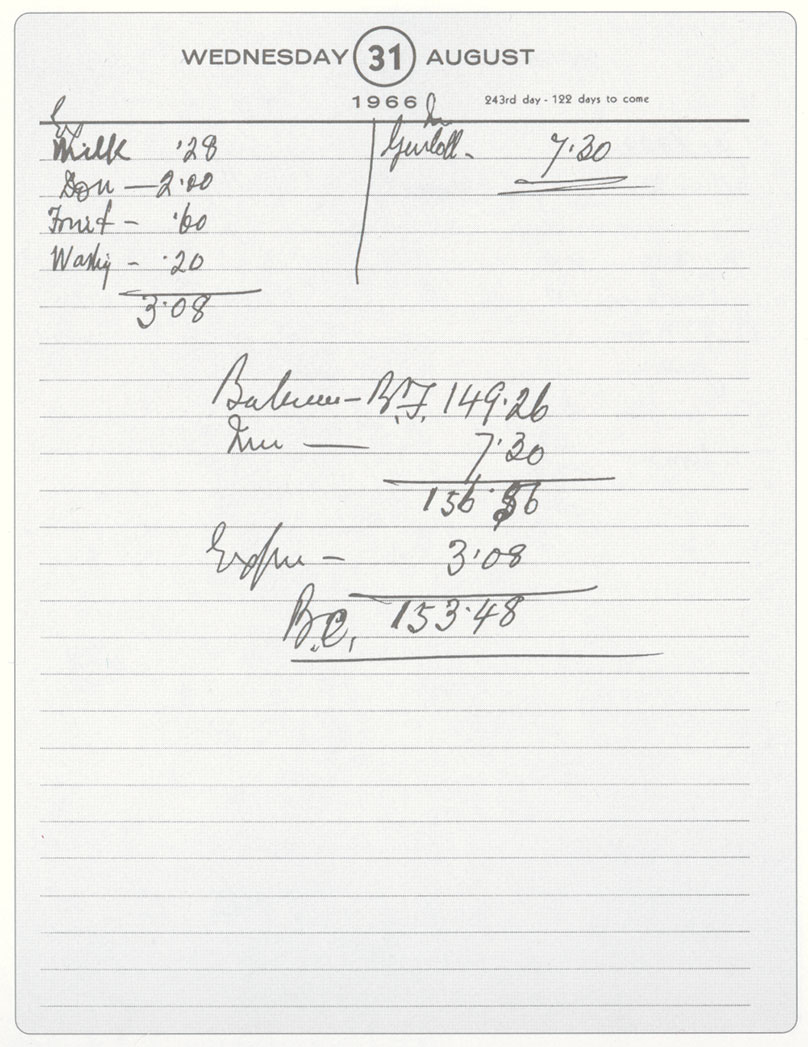 WEDNESDAY 31 AUGUST
1966
243rd day - 122 days to come
Ex
Milk '28
Don — 2·00
Fruit - ·60
Washing - ·20
3·08
In
7·30
Balance - B.F. 149·26
Inc — 7·30
156·56
Expen - 3·08
B.C. 153·48